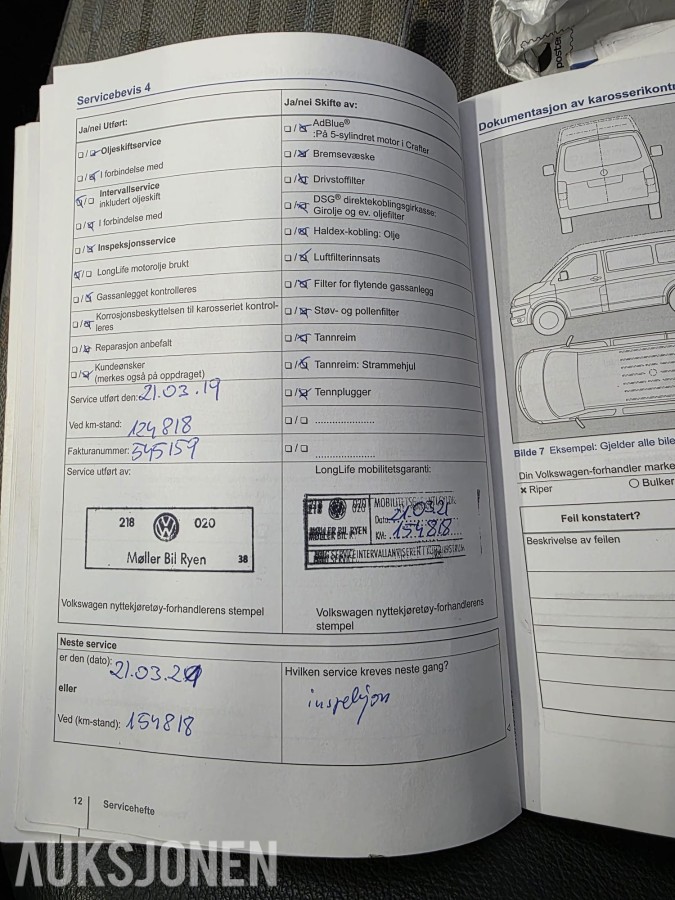 Servicebevis 4
Ja/nei Utført:
Oljeskiftservice
I forbindelse med
Intervallservice
inkludert oljeskift
I forbindelse med
Inspeksjonsservice
LongLife motorolje brukt
Gassanlegget kontrolleres
Korrosjonsbeskyttelsen til karosseriet kontrol-
leres
Reparasjon anbefalt
Kundeønsker
(merkes også på oppdraget)
Service utført den: 21.03.19
Ved km-stand: 124818
Fakturanummer: 545159
Service utført av:
218 020
Møller Bil Ryen 38
Volkswagen nyttekjøretøy-forhandlerens stempel
Ja/nei Skifte av:
AdBlue®
:På 5-sylindret motor i Crafter
Bremsevæske
Drivstoffilter
DSG® direktekoblingsgirkasse:
Girolje og ev. oljefilter
Haldex-kobling: Olje
Luftfilterinnsats
Filter for flytende gassanlegg
Støv- og pollenfilter
Tannreim
Tannreim: Strammehjul
Tennplugger
LongLife mobilitetsgaranti:
218 020
Dato: 21.03.21
MØLLER BIL RYEN KM: 154818
Volkswagen nyttekjøretøy-forhandlerens
stempel
Neste service
er den (dato): 21.03.21
eller
Ved (km-stand): 154818
Hvilken service kreves neste gang?
inspeksjon
12 Servicehefte
Dokumentasjon av karosserikontr
Bilde 7 Eksempel: Gjelder alle bile
Din Volkswagen-forhandler marke
× Riper
Bulker
Feil konstatert?
Beskrivelse av feilen
AUKSJONEN